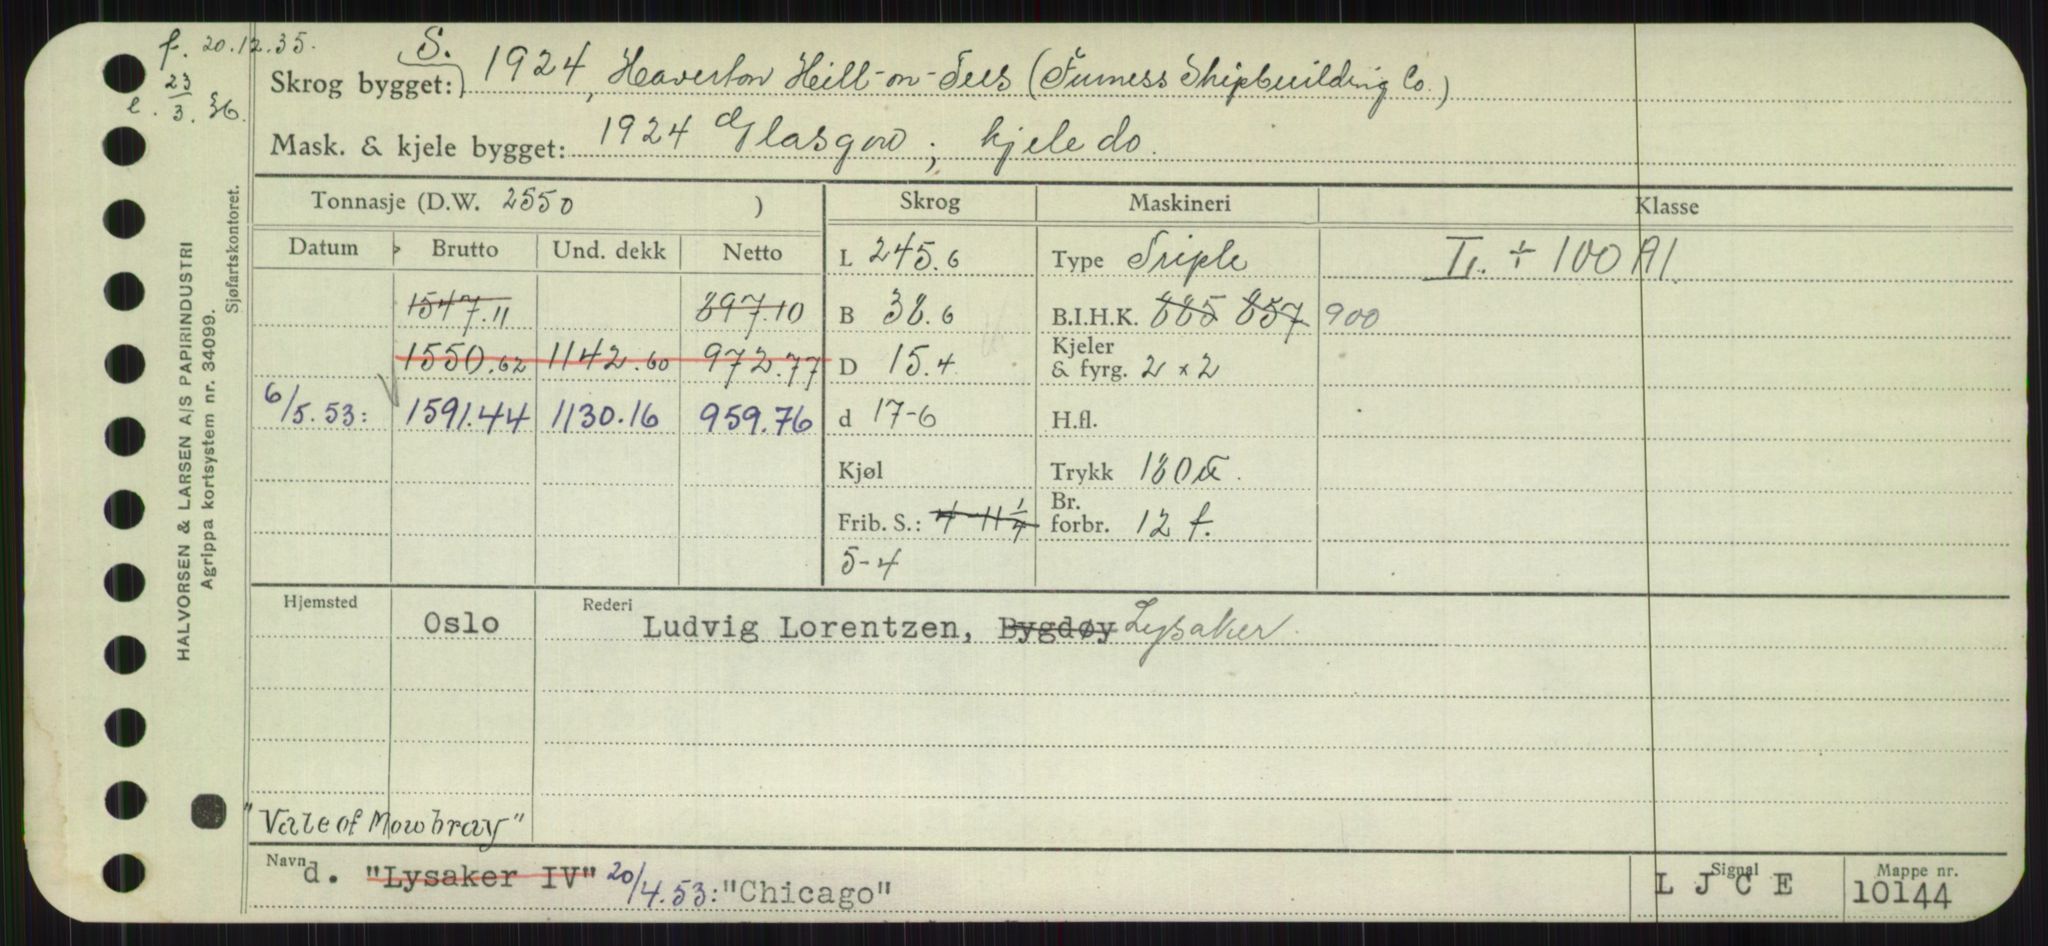 f. 20.12.35.
e. 23/3. 36.
S.
Skrog bygget: 1924, Haverton Hill-on-Tees (Furness Shipbuilding Co.)
Mask. & kjele bygget: 1924 Glasgow; kjele do.
HALVORSEN & LARSEN A/S PAPIRINDUSTRI
Agrippa kortsystem nr. 34099.
Sjøfartskontoret.
Tonnasje (D.W. 2550 ) Skrog Maskineri Klasse
Datum Brutto Und. dekk Netto L 245.6 Type Triple Ll. ÷ 100 A1
1547.11 897.10 B 38.6 B.I.H.K. 885 857 900
1550.62 1142.60 972.77 D 15.4 Kjeler & fyrg. 2 x 2
6/5.53: 1591.44 1130.16 959.76 d 17-6 H.fl.
Kjøl Trykk 180 ℔.
Frib. S.: 4-11 1/4 Br. forbr. 12 t.
5-4
Hjemsted Oslo Rederi Ludvig Lorentzen, Bygdøy Lysaker
"Vale of Mowbray"
Navn d. "Lysaker IV" 20/4.53: "Chicago" Signal L J C E Mappe nr. 10144